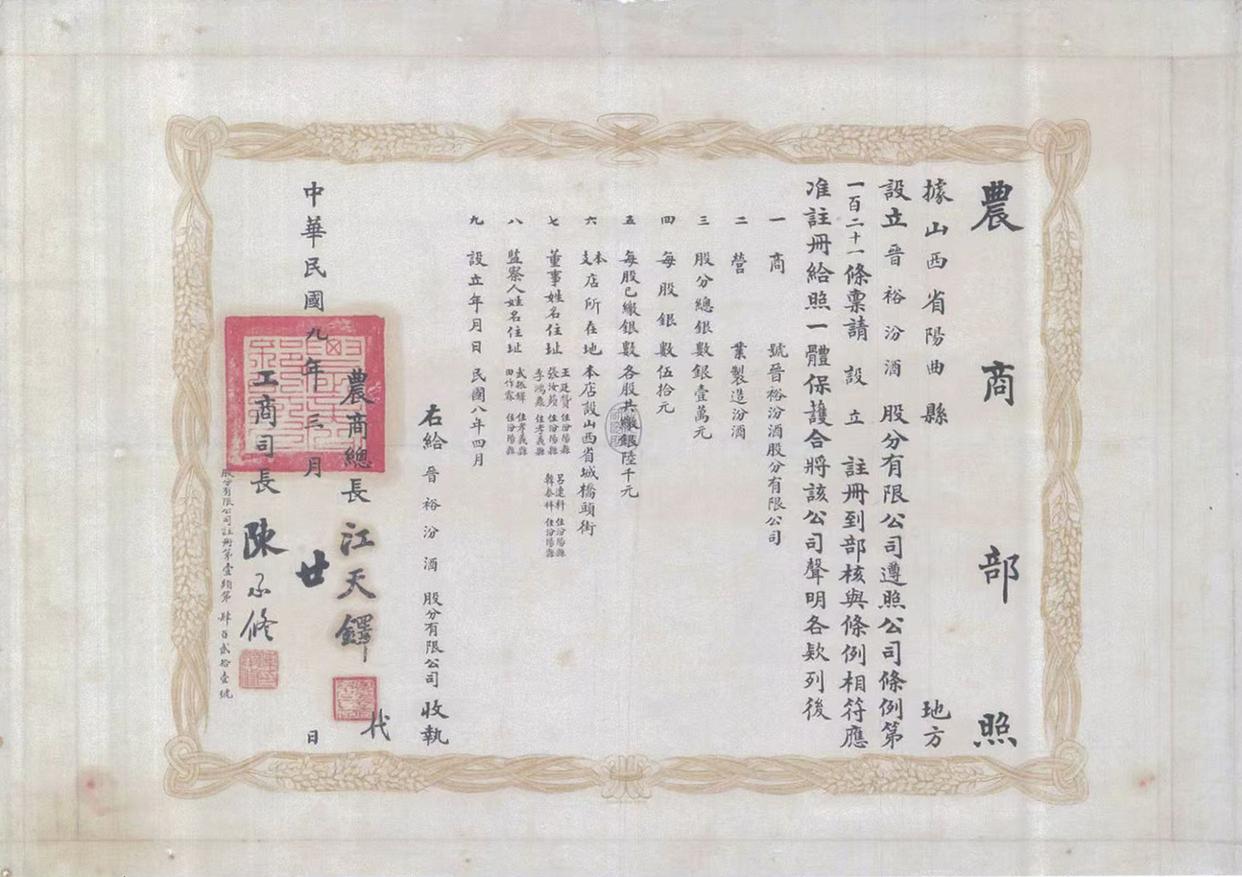 農商部照
據山西省陽曲縣地方
設立晉裕汾酒股分有限公司遵照公司條例第
一百二十一條稟請設立註冊到部核與條例相符應
准註冊給照一體保護合將該公司聲明各欵列後
一 商號晉裕汾酒股分有限公司
二 營業製造汾酒
三 股分總銀數銀壹萬元
四 每股銀數伍拾元
五 每股已繳銀數各股共繳銀陸千元
六 本支店所在地本店設山西省城橋頭街
七 董事姓名住址
王廷贊 住汾陽縣 呂達科 住汾陽縣
張汝蘋 住汾陽縣 韓泰祥 住汾陽縣
李鴻義 住孝義縣
八 監察人姓名住址
武振鐸 住孝義縣
田作霖 住汾陽縣
九 設立年月日 民國八年四月
右給晉裕汾酒股分有限公司收執
農商總長江天鐸代
中華民國九年三月廿日
工商司長陳承修
股分有限公司註冊第壹類第肆百貳拾壹號